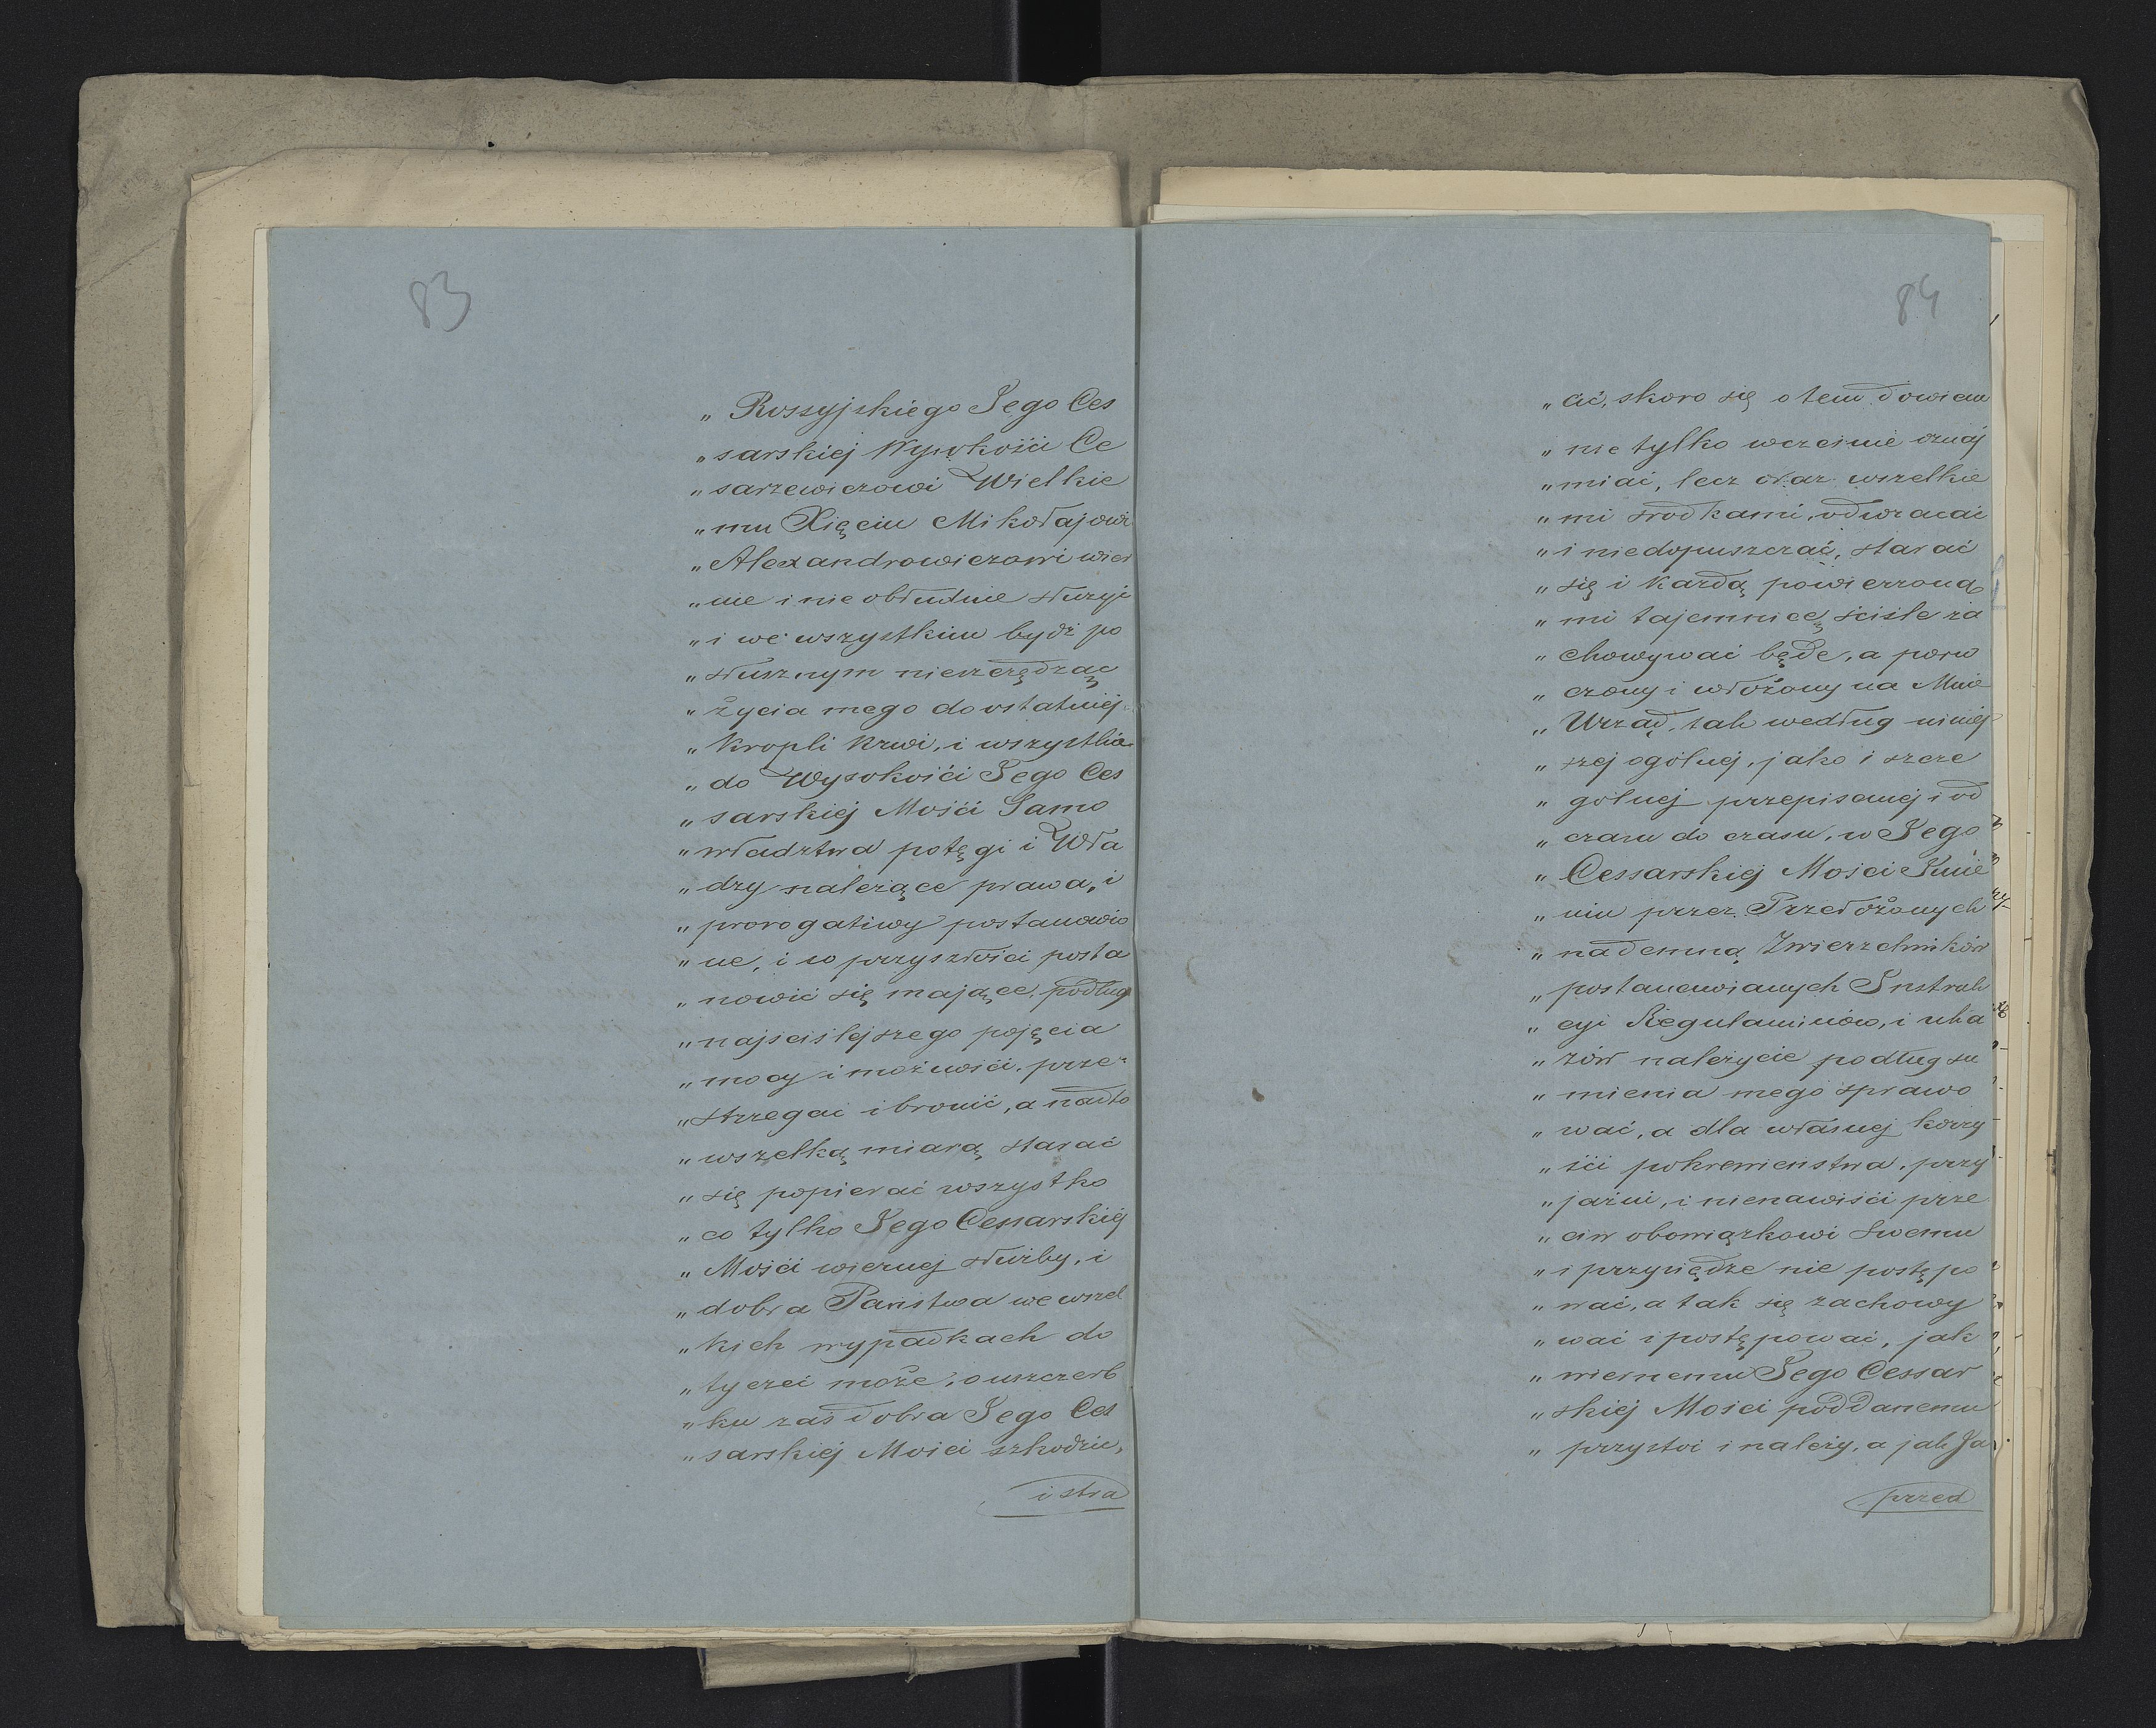 83
„ Rossyjskiego Jego Ces
„ sarskiej Wysokości Ce
„ sarzewiczowi Wielkie
„ mu Xięciu Mikołajowi
„ Alexandrowiczowi wier
„ nie i nie obłudnie służyć
„ i we wszystkim bydź po
„ słusznym nieszczędząc
„ życia mego do ostatniej
„ kropli krwi, i wszystkie
„ do Wysokości Jego Ces
„ sarskiej Mości Samo
„ władztwa potęgi i Wła
„ dzy należące prawa, i
„ prorogatiwy postanowio
„ ne, i w przyszłości posta
„ nowić się mające, podług
„ najściślejszego pojęcia
„ mocy i możności, prze-
„ strzegać i bronić, a nadto
„ wszelką miarą starać
„ się popierać wszystko
„ co tylko Jego Cessarskiej
„ Mości wiernej służby, i
„ dobra Państwa we wszel
„ kich wypadkach do
„ tyczeć może; o uszczerb
„ ku zaś dobra Jego Ces
„ sarskiej Mości szkodzie,
i stra
84
„ cić, skoro się o tem dowiem
„ nie tylko wcześnie oznaj
„ miać, lecz oraz wszelkie
„ mi środkami, odwracać
„ i niedopuszczać, starać
„ się i każdą powierzoną
„ mi tajemnicę ściśle za
„ chowywać będę, a poru
„ czony i włożony na Mnie
„ Urząd, tak według niniej
„ szej ogólnej, jako i szcze
„ gólnej przepisanej i od
„ czasu do czasu, w Jego
„ Cessarskiej Mości Imie
„ niu przez Przełożonych
„ nademną Zwierzchników
„ postanowianych Instruk
„ cyi Regulaminów, i uka
„ zów należycie podług su
„ mienia mego sprawo
„ wać, a dla własnej korzy
„ ści pokrewieństwa, przy
„ jaźni, i nienawiści prze
„ ciw obowiązkowi Swemu
„ i przysiędze nie postępo
„ wać, a tak się zachowy
„ wać i postępować, jak
„ wiernemu Jego Cessar
„ skiej Mości poddanemu
„ przystoi i należy, a jak Ja
przed